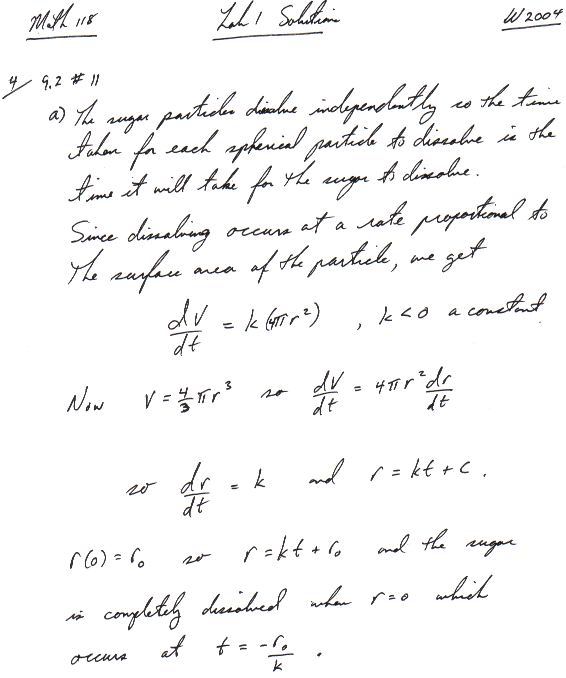 Math 118 Lab 1 Solutions W2004
4/ 9.2 # 11
a) The sugar particles dissolve independently so the time
taken for each spherical particle to dissolve is the
time it will take for the sugar to dissolve.
Since dissolving occurs at a rate proportional to
the surface area of the particle, we get
dV/dt = k(4πr²) , k<0 a constant
Now V = 4/3 πr³ so dV/dt = 4πr² dr/dt
so dr/dt = k and r = kt + c.
r(0) = r₀ so r = kt + r₀ and the sugar
is completely dissolved when r=0 which
occurs at t = -r₀/k .